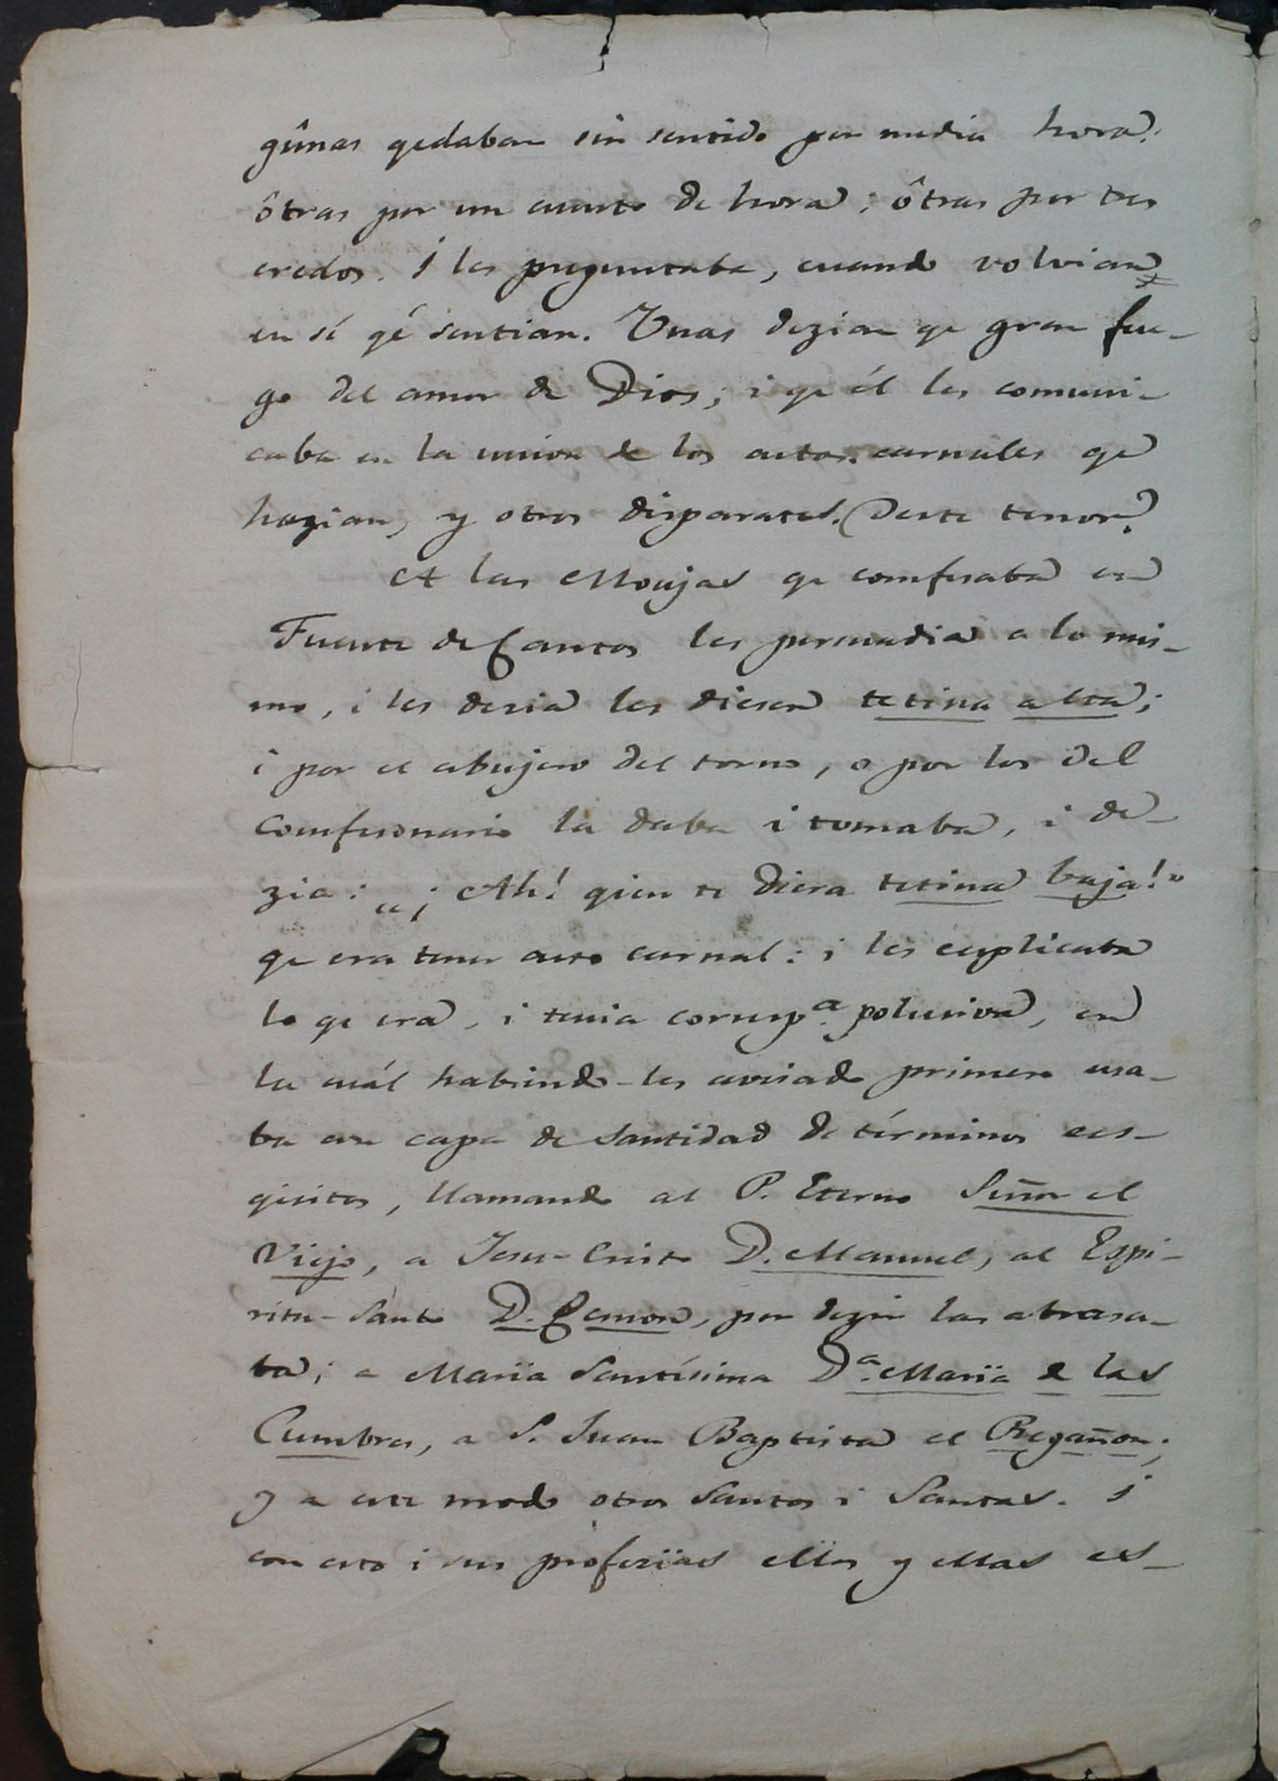 gûnas qedaban sin sentido por media hora:
ôtras por un cuarto de hora; ôtras por tres
credos. I les preguntaba, cuando volvian
en sí qé sentian. Unas dezian qe gran fue-
go del amor de Dios; i qe él les comuni-
caba en la union de los actos carnales qe
hazian, y otros disparates. (Deste tenor.
A las Monjas qe comfesaba en
Fuente de Cantos les persuadia a lo mis-
mo, i les desia les diesen tetina alta;
i por el abujero del torno, o por los del
Comfesonario la daba i tomaba, i de-
zia: "¡Ah! qien te diera tetina baja!"
qe era tener acto carnal: i les esplicaba
lo qe era, i tenia corresp.ª polusion, en
la cuál habiendo-les avisado primero usa-
ba en capa de Santidad de términos ecs-
qisitos, llamando al P. Eterno Señor el
Viejo, a Jesu-Cristo D. Manuel, al Espi-
ritu-Santo D. Qemon, por dezir las abrasa-
ba; a Marïa Santísima D.ª Marïa de las
Cumbres, a S. Juan Baptista el Regañon;
y a este modo otros Santos i Santas. I
con esto i sus profezïas ellos y ellas es-